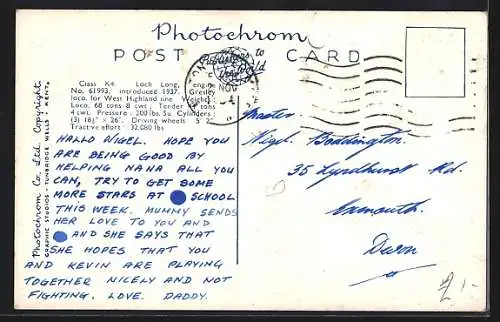 Photochrom
POST CARD
Publishers to
the World
NOV
Class K4. Loch Long, engine
No. 61993, introduced 1937. Gresley
loco. for West Highland line Weights:
Loco. 68 tons 8 cwt., Tender 44 tons
4 cwt. Pressure: 200 lb. Su Cylinders:
(3) 18½" × 26". Driving wheels 5' 2"
Tractive effort: 32,080 lbs
Photochrom Co. Ltd. Copyright.
GRAPHIC STUDIOS · TUNBRIDGE WELLS : KENT.
HALLO NIGEL. HOPE YOU
ARE BEING GOOD BY
HELPING NANA ALL YOU
CAN, TRY TO GET SOME
MORE STARS AT SCHOOL
THIS WEEK. MUMMY SENDS
HER LOVE TO YOU AND
AND SHE SAYS THAT
SHE HOPES THAT YOU
AND KEVIN ARE PLAYING
TOGETHER NICELY AND NOT
FIGHTING. LOVE. DADDY.
Master
Nigel Boddington.
35 Lyndhurst Rd.
Exmouth.
Devon
£1-